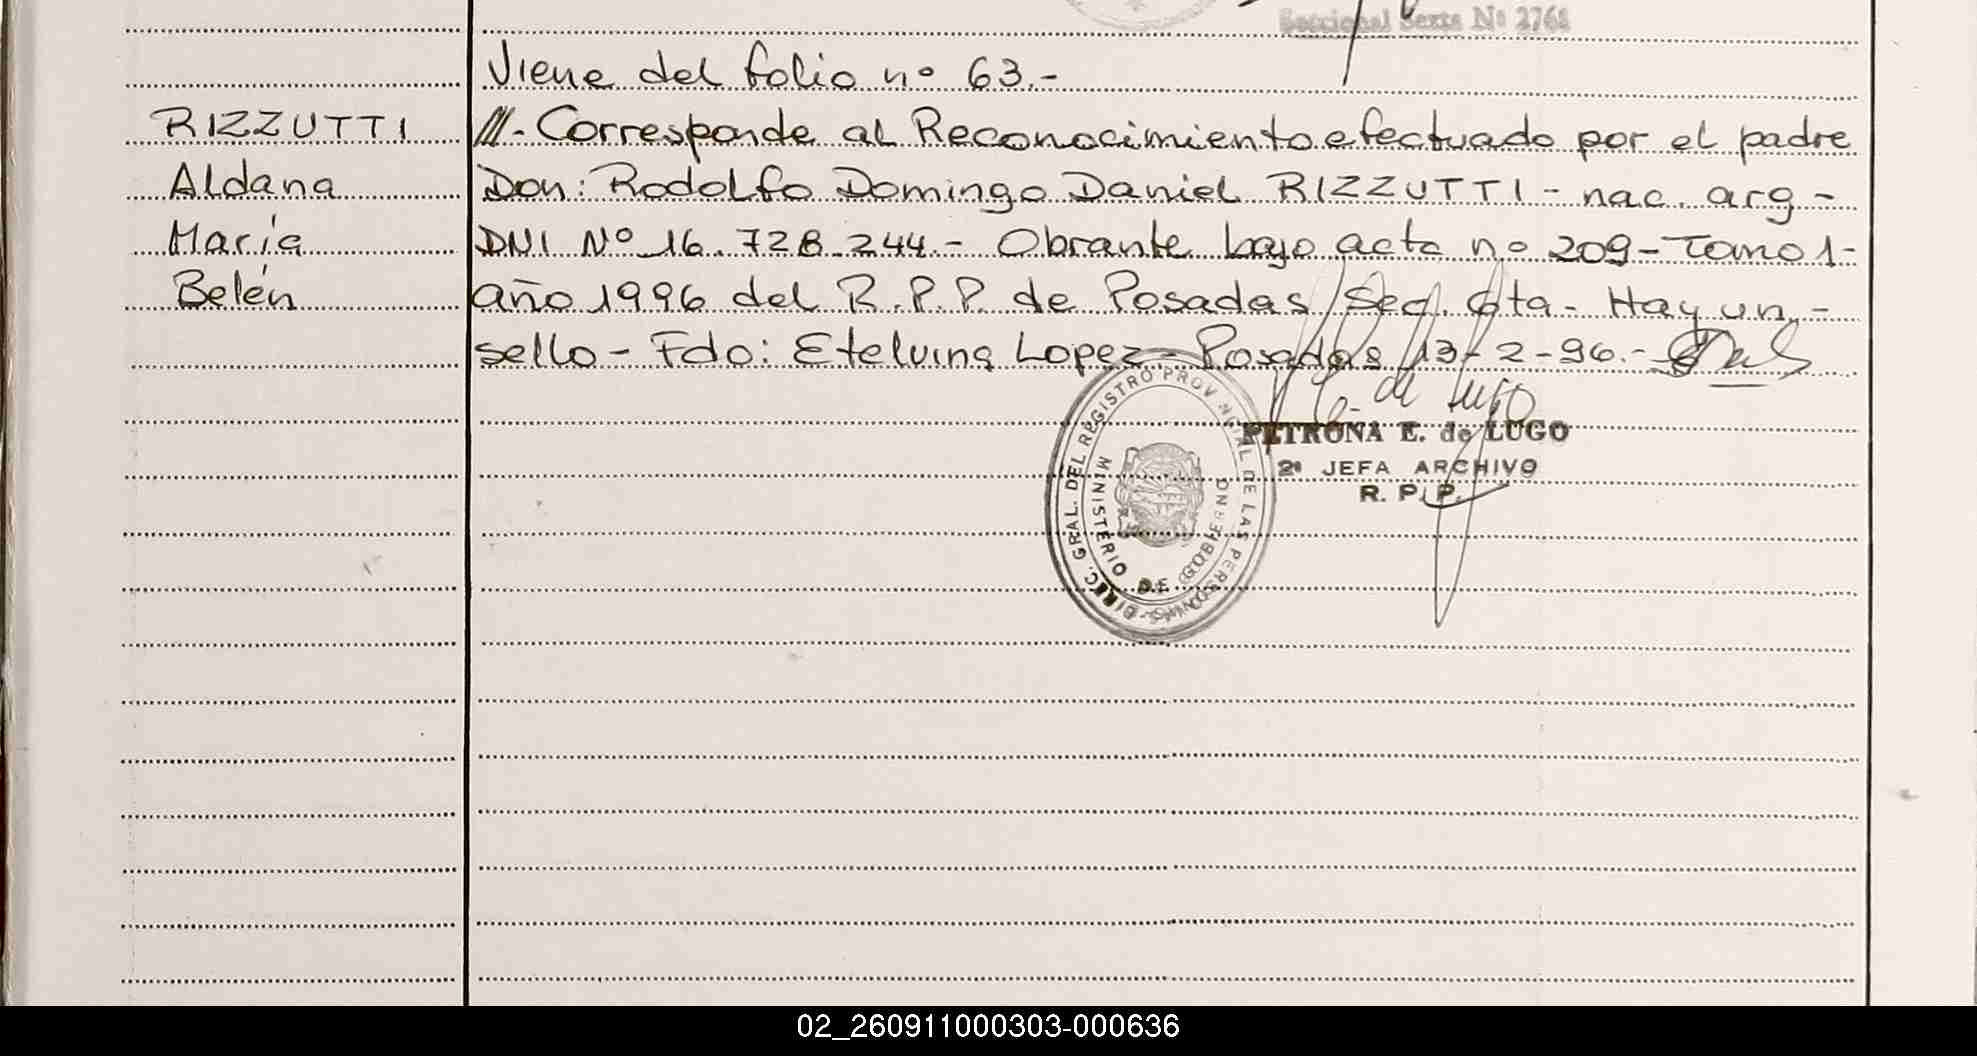 Seccional Sexta Nº 2761
Viene del folio nº 63.-
RIZZUTTI
Aldana
María
Belén
///.- Corresponde al Reconocimiento efectuado por el padre
Don: Rodolfo Domingo Daniel RIZZUTTI - nac. arg -
DNI Nº 16.728.244.- Obrante bajo acta nº 209 - Tomo 1-
año 1996 del R.P.P. de Posadas Sec. 6ta. Hay un -
sello - Fdo: Etelvina Lopez - Posadas 13-2-96.-
P. E. de Lugo
PETRONA E. de LUGO
2ª JEFA ARCHIVO
R. P. P.
DIREC. GRAL. DEL REGISTRO PROVINCIAL DE LAS PERSONAS
MINISTERIO DE GOBIERNO
02_260911000303-000636